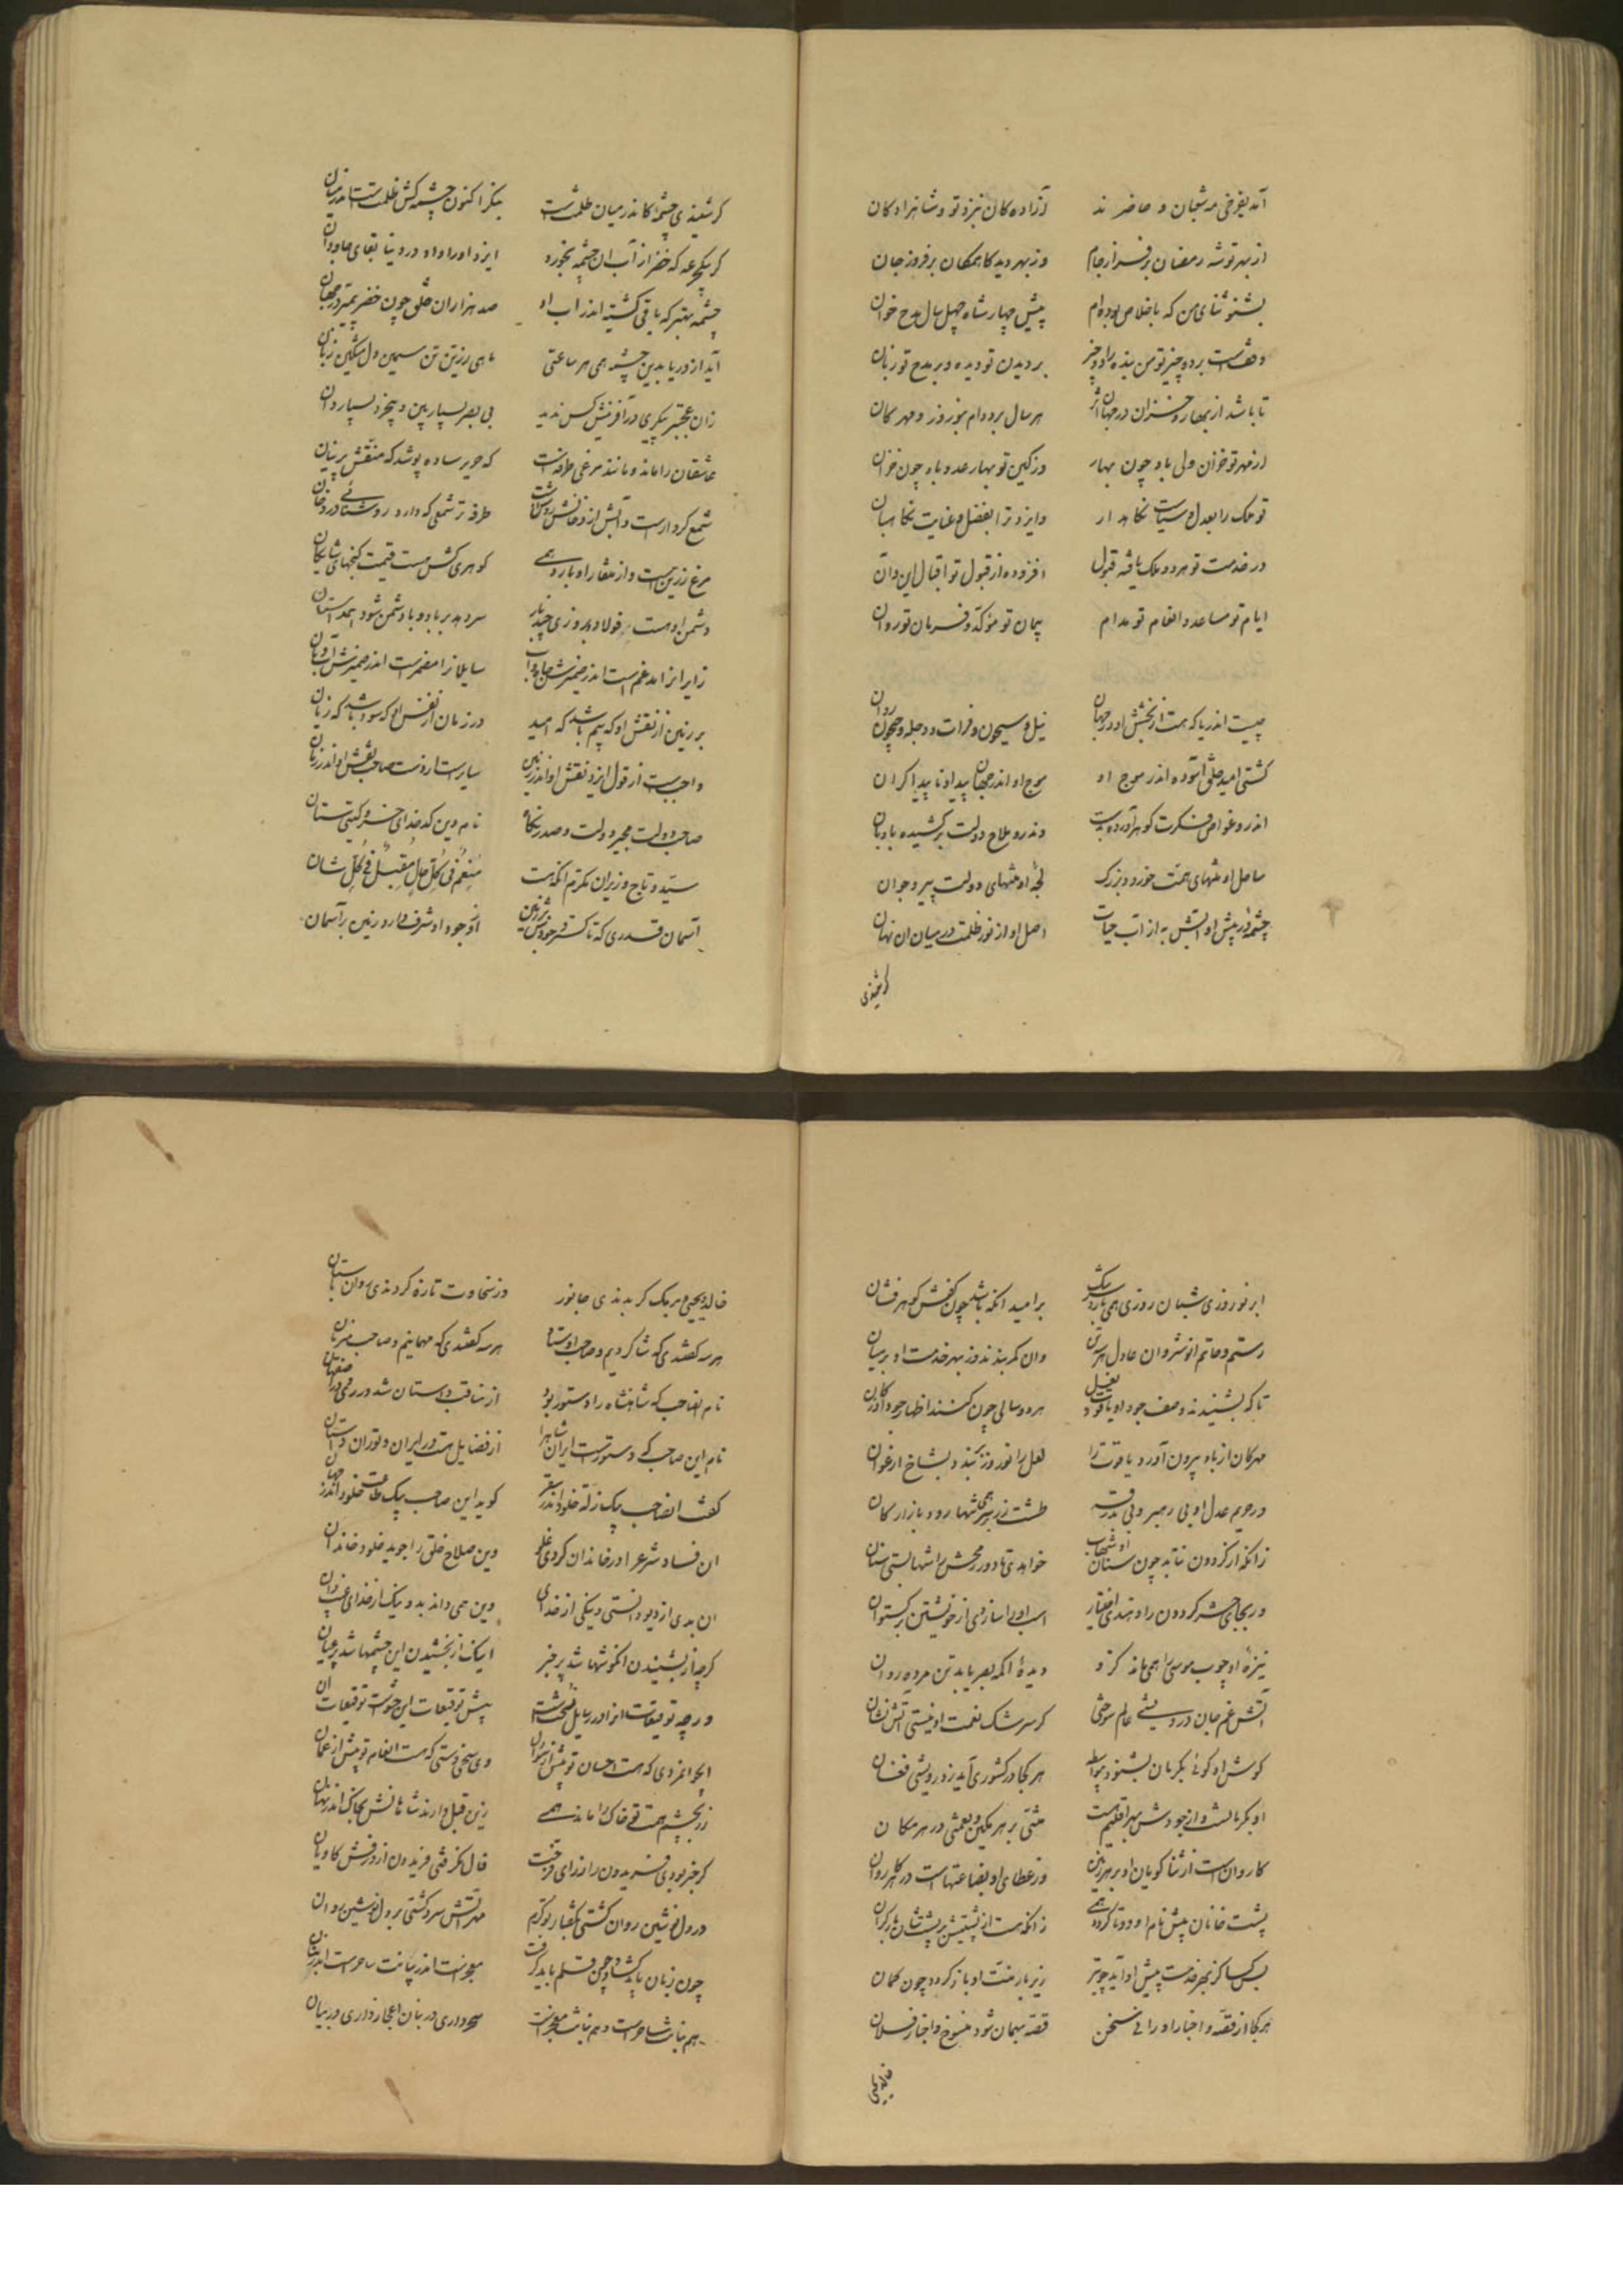 آمد بفرخی مه شعبان و حاضرند آزاده کان نزد تو و شاهزادکان
از بهر توشه رمضان برفراز جام وز بهر دید کاه مکان برفروز جان
بشنو ثنای من که باخلاص بوده ام پیش چهار شاه چهل سال مدح خوان
وقفست بر دو چیز تو من بنده را دو چیز بر دیدن تو دیده و بر مدح تو زبان
تا باشد از بهار و خزان در جهان اثر هر سال بر دوام بنوروز و مهرکان
از مهر تو خزان ولی باد چون بهار وز کین تو بهار عدو باد چون خزان
تو ملک را بعدل و سیاست نکاهدار وایزد ترا بفضل و عنایت نکاهبان
در خدمت تو هر دو ملک یافته قبول افزوده از قبول تو اقبال این و آن
ایام تو مساعد و انعام تو مدام پیمان تو مؤکد و فرمان تو روان
چیست اندریا که هست از بخشش او در جهان نیل و سیحون و فرات و دجله و جیحون روان
کشتی امید خلقی آسوده اندر موج او موج او اندر جهان پیدا و ناپیدا کران
اندرو غواص فکرت کوهر آورده بدست وندرو ملاح دولت برکشیده بادبان
ساحل او ملتهای همت خورد و بزرک لجه او ملتهای دولت پیر و جوان
چشمه در پیش او آبش به از آب حیات اصل او از نور ظلمت در میان ان نهان
کر شنیدی
کر شنیدی چشمه کاندر میان ظلمتست بنکر اکنون چشمه کش ظلمتست اندر میان
کر یکی جرعه که خضر از آب ان چشمه بخورد ایزد او را داد در دنیا بقای جاودان
چشمه بهتر که باقی کشته اند از آب او صد هزاران خلق چون خضر پیمبر در جهان
آید از دریا بدین چشمه همی هر ساعتی ماهی زرین تن سیمین دل مشکین زبان
زان عجبتر پیکری در آفرینش کس ندید بی بصر بسیار بین و بیخرد بسیار دان
عاشقان را ماند و مانند مرغی طرفه است که حریر ساده پوشد که منقش پرنیان
شمع کردارست و آتش از دخانش روشنست طرفه تر شمعی که دارد روشنائی در دخان
مرغ زرین است و از منقار او بارد همی کوهری کش هست قیمت کنجهای شایکان
دشمن او هست فولاد و بروزی چند بار سر دهد بر باد و با دشمن شود همداستان
زایرانرا مدغم است اندر ضمیرش جاه و آب سایلانرا مضمرست اندر ضمیرش آب و نان
بر زمین از نقش او که بیم باشد که امید در زمان از نفس او که سود باشد که زیان
واجبست از قول ایزد نقش او اندر زمین سایرست از دست صاحب نقش او اندر زمان
صاحب دولت مجیر دولت و صدر نکاه نام دین کدخدای خسرو کیتی ستان
سید و تاج وزیران مکرم انکه هست منعم فی کل حال مقبل فی کل شان
آسمان قدری که تا کسترد جودش بر زمین از وجود او شرف دارد زمین بر آسمان
ابر نوروزی شبان روزی همی بارد سرشک بر امید انکه باشد چون کفش کوهر فشان
رستم و حاتم انوشروان عادل هر سه آن وان کمر بندند وز بهر خدمت او بر میان
تا که بشنیدند وصف جود او یاقوت و لعل هر دو سالی چون کنند اظهار جود از کان
مهرکان از باد بیرون آورد یاقوت را لعل را نوروز بندد بشاخ ارغوان
در حریم عدل او بی رهبر و بی بدرقه طشت زر بر سر همی شبها رود بازارکان
زانکه از کردون نتابد چون سنان او شهاب خواهدی تا دور رمحش را شهابستی سنان
ور بجای چشم کردون را و تندی اختیار اسب او را سازدی از خویشتن برکستوان
نیزه او چوب موسی را همی ماند کزو دیده اکمه بصر یابد تن مرده روان
آتش غم جان درویشی عالم سوختی کر سرشک نعمت او نیستی آتش نشان
کوش او کوئی بکرمان بشنود بیواسطه هر کجا در کشوری آید ز درویشی فغان
او بکرمانست و از جودش بهر اقلیم هست منتی بر هر مکین و نعمتی در هر مکان
کاروانست از ثنا کویان او بر هر زمین وز عطای او بضاعتهاست در هر کاروان
پشت خانان پیش نام او دوتا کردد همی زانکه هست از منتش بر پشت شان بار کران
بس کسا کز بهر خدمت پیش او آید چو تیر زیر بار منت او باز کردد چون کمان
هر کجا از قصه و اخبار او رانی سخن قصه مهمان شود منسوخ و اخبار فلان
خالد و یحیی
خالد و یحیی و برمک کر بدندی جانور وز سخاوت تازه کردندی روان باستان
هر سه کفتندی که شاکردیم و صاحب اوستاد هر سه کفتندی که مهمانیم و صاحب میزبان
نام انصاحب که شاهنشاه را دستور بود از مناقب داستان شد در ری و در اصفهان
نام این صاحب که دستورست ایران شاه را از فضایل هست در ایران و توران داستان
کفت انصاحب بیک زلت خلود اندر سقر کوید این صاحب بیک طاعت خلود اندر جنان
ان فساد شرع را در خاندان کردی غلو وین صلاح خلق را جوید خلود خاندان
ان بدی از دیو دانستی و نیکی از خدای وین همی داند بد و نیک از خدای غیب دان
کرچه از بشنیدن انکوشها شد پر خبر اینک از بخشیدن این چشمها شد پر عیان
ورچه توقیعات انرا در رسایل نسختست پیش توقیعات این حشوست توقیعات ان
ای جوانمردی که هست احسان تو بیش از وی سخی دستی که هست انعام تو بیش از عمان
زر بچشم همت تو خاک را ماند همی زین قبل دارند شاهانش بخاک اندر نهان
کر خبر بودی فریدون را ز رای فرخت فال نکرفتی فریدون از درفش کاویان
در دل نوشین روان کشتی بکفتار تو کرم مهر آتش سرد کشتی بر دل نوشین روان
چون زبان باید کشاد و چون قلم باید کرفت معجزست اندر بیانت ساحرست اندر بنان
هم بنانت ساحرست و هم بیانت معجزست سحر داری در بنان اعجاز داری در بیان